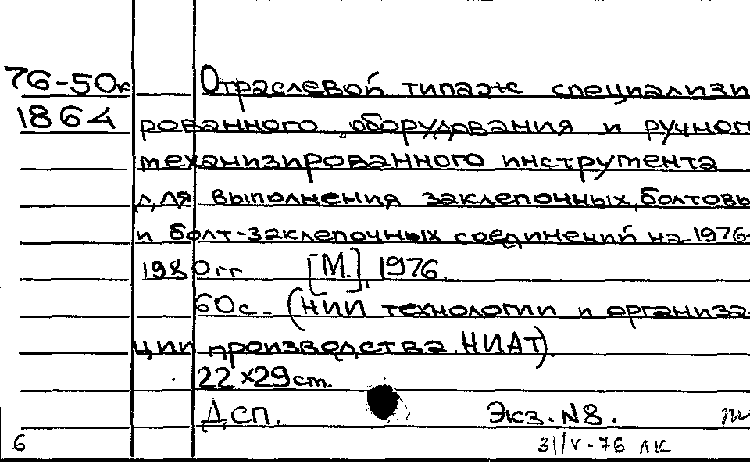 76-50к Отраслевой типаж специализи
1864 рованного оборудования и ручног
механизированного инструмента
для выполнения заклепочных, болтовы
и болт-заклепочных соединений на 1976-
1980гг [М.], 1976.
60с. (НИИ технологии и организа
ции производства. НИАТ).
22×29см.
ДСП. Экз. №8.
6 31/V-76 ЛК